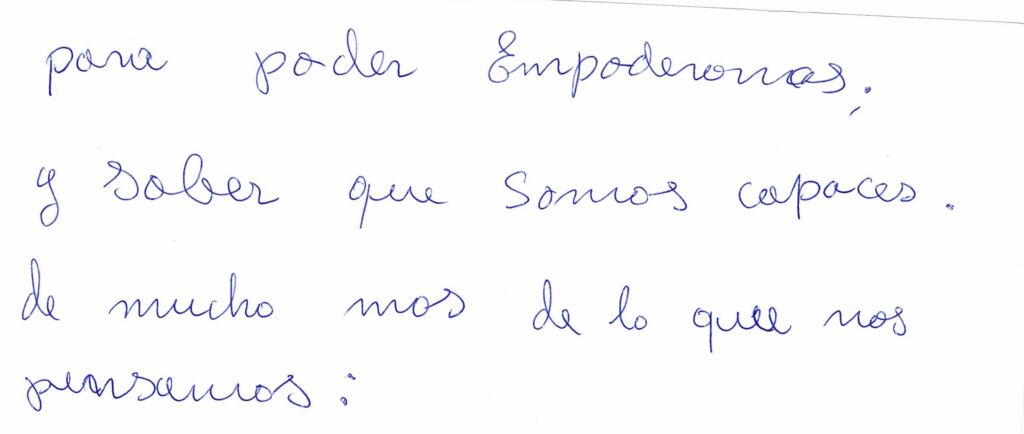 para poder Empoderarnos;
y saber que somos capaces.
de mucho mas de lo que nos
pensamos: